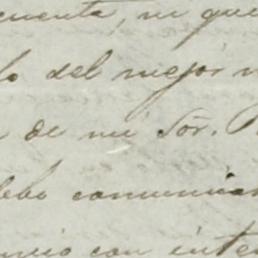 cuenta, ni que
lo del mejor
de mi Sor.
debo comunicar
con inte